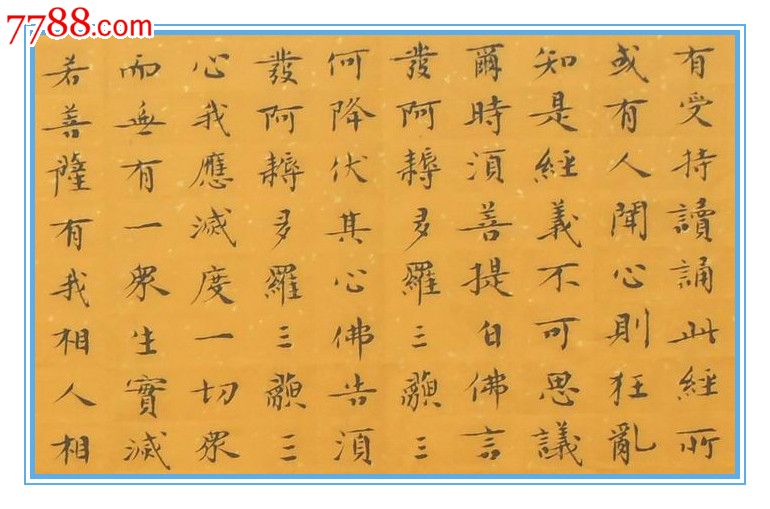 7788.com
有受持讀誦此經所
或有人聞心則狂亂
知是經義不可思議
爾時須善提白佛言
發阿耨多羅三藐三
何降伏其心佛告須
發阿耨多羅三藐三
心我應滅度一切眾
而無有一眾生實滅
若善薩有我相人相